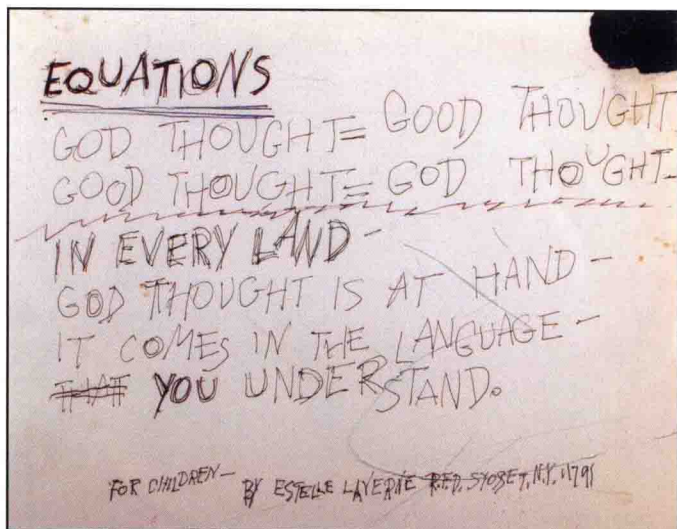 EQUATIONS
GOD THOUGHT= GOOD THOUGHT
GOOD THOUGHT= GOD THOUGHT-
IN EVERY LAND-
GOD THOUGHT IS AT HAND-
IT COMES IN THE LANGUAGE-
THAT YOU UNDERSTAND.
FOR CHILDREN- BY ESTELLE LAVERNE R.F.D. SYOSSET, N.Y. 11791